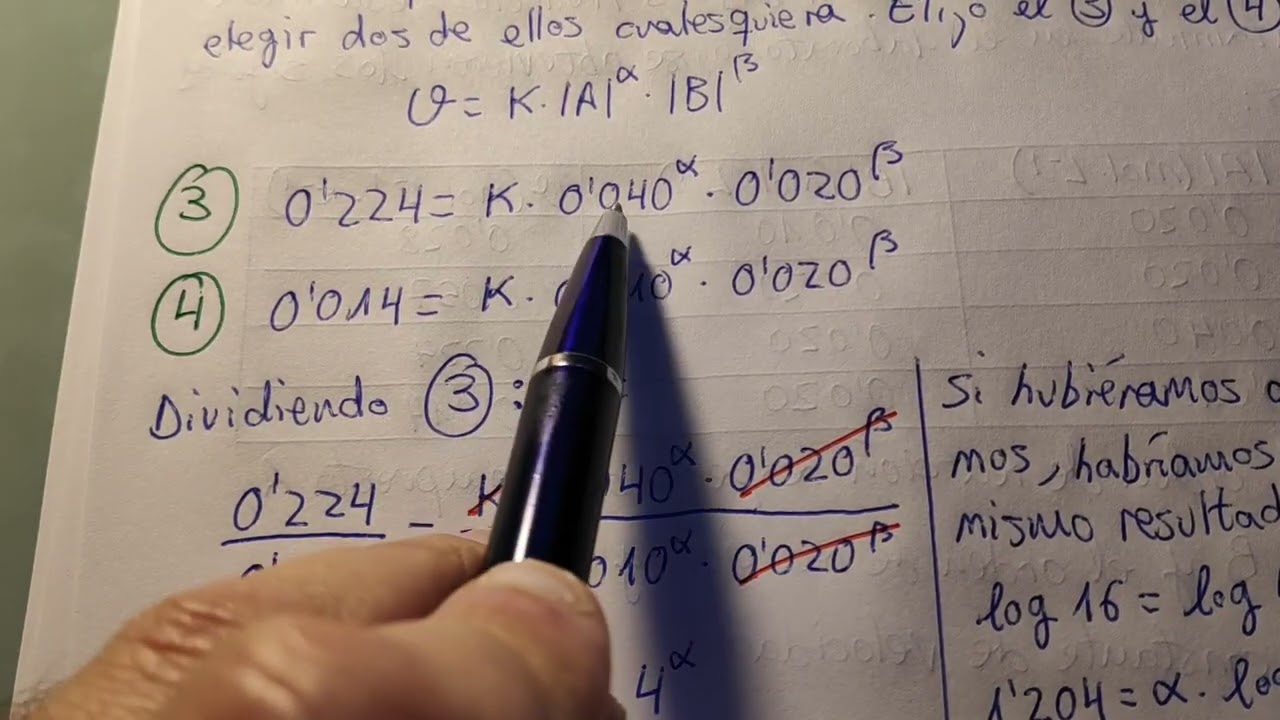 elegir dos de ellos cualesquiera. Elijo el ③ y el ④
v = K · |A|^α · |B|^β
③ 0'224 = K · 0'040^α · 0'020^β
④ 0'014 = K · 10^α · 0'020^β
Dividiendo ③ :
0'224 = K 40^α · 0'020^β
010^α · 0'020^β
4^α
Si hubiéramos
mos, habríamos
mismo resultad
log 16 = log
1'204 = α · log